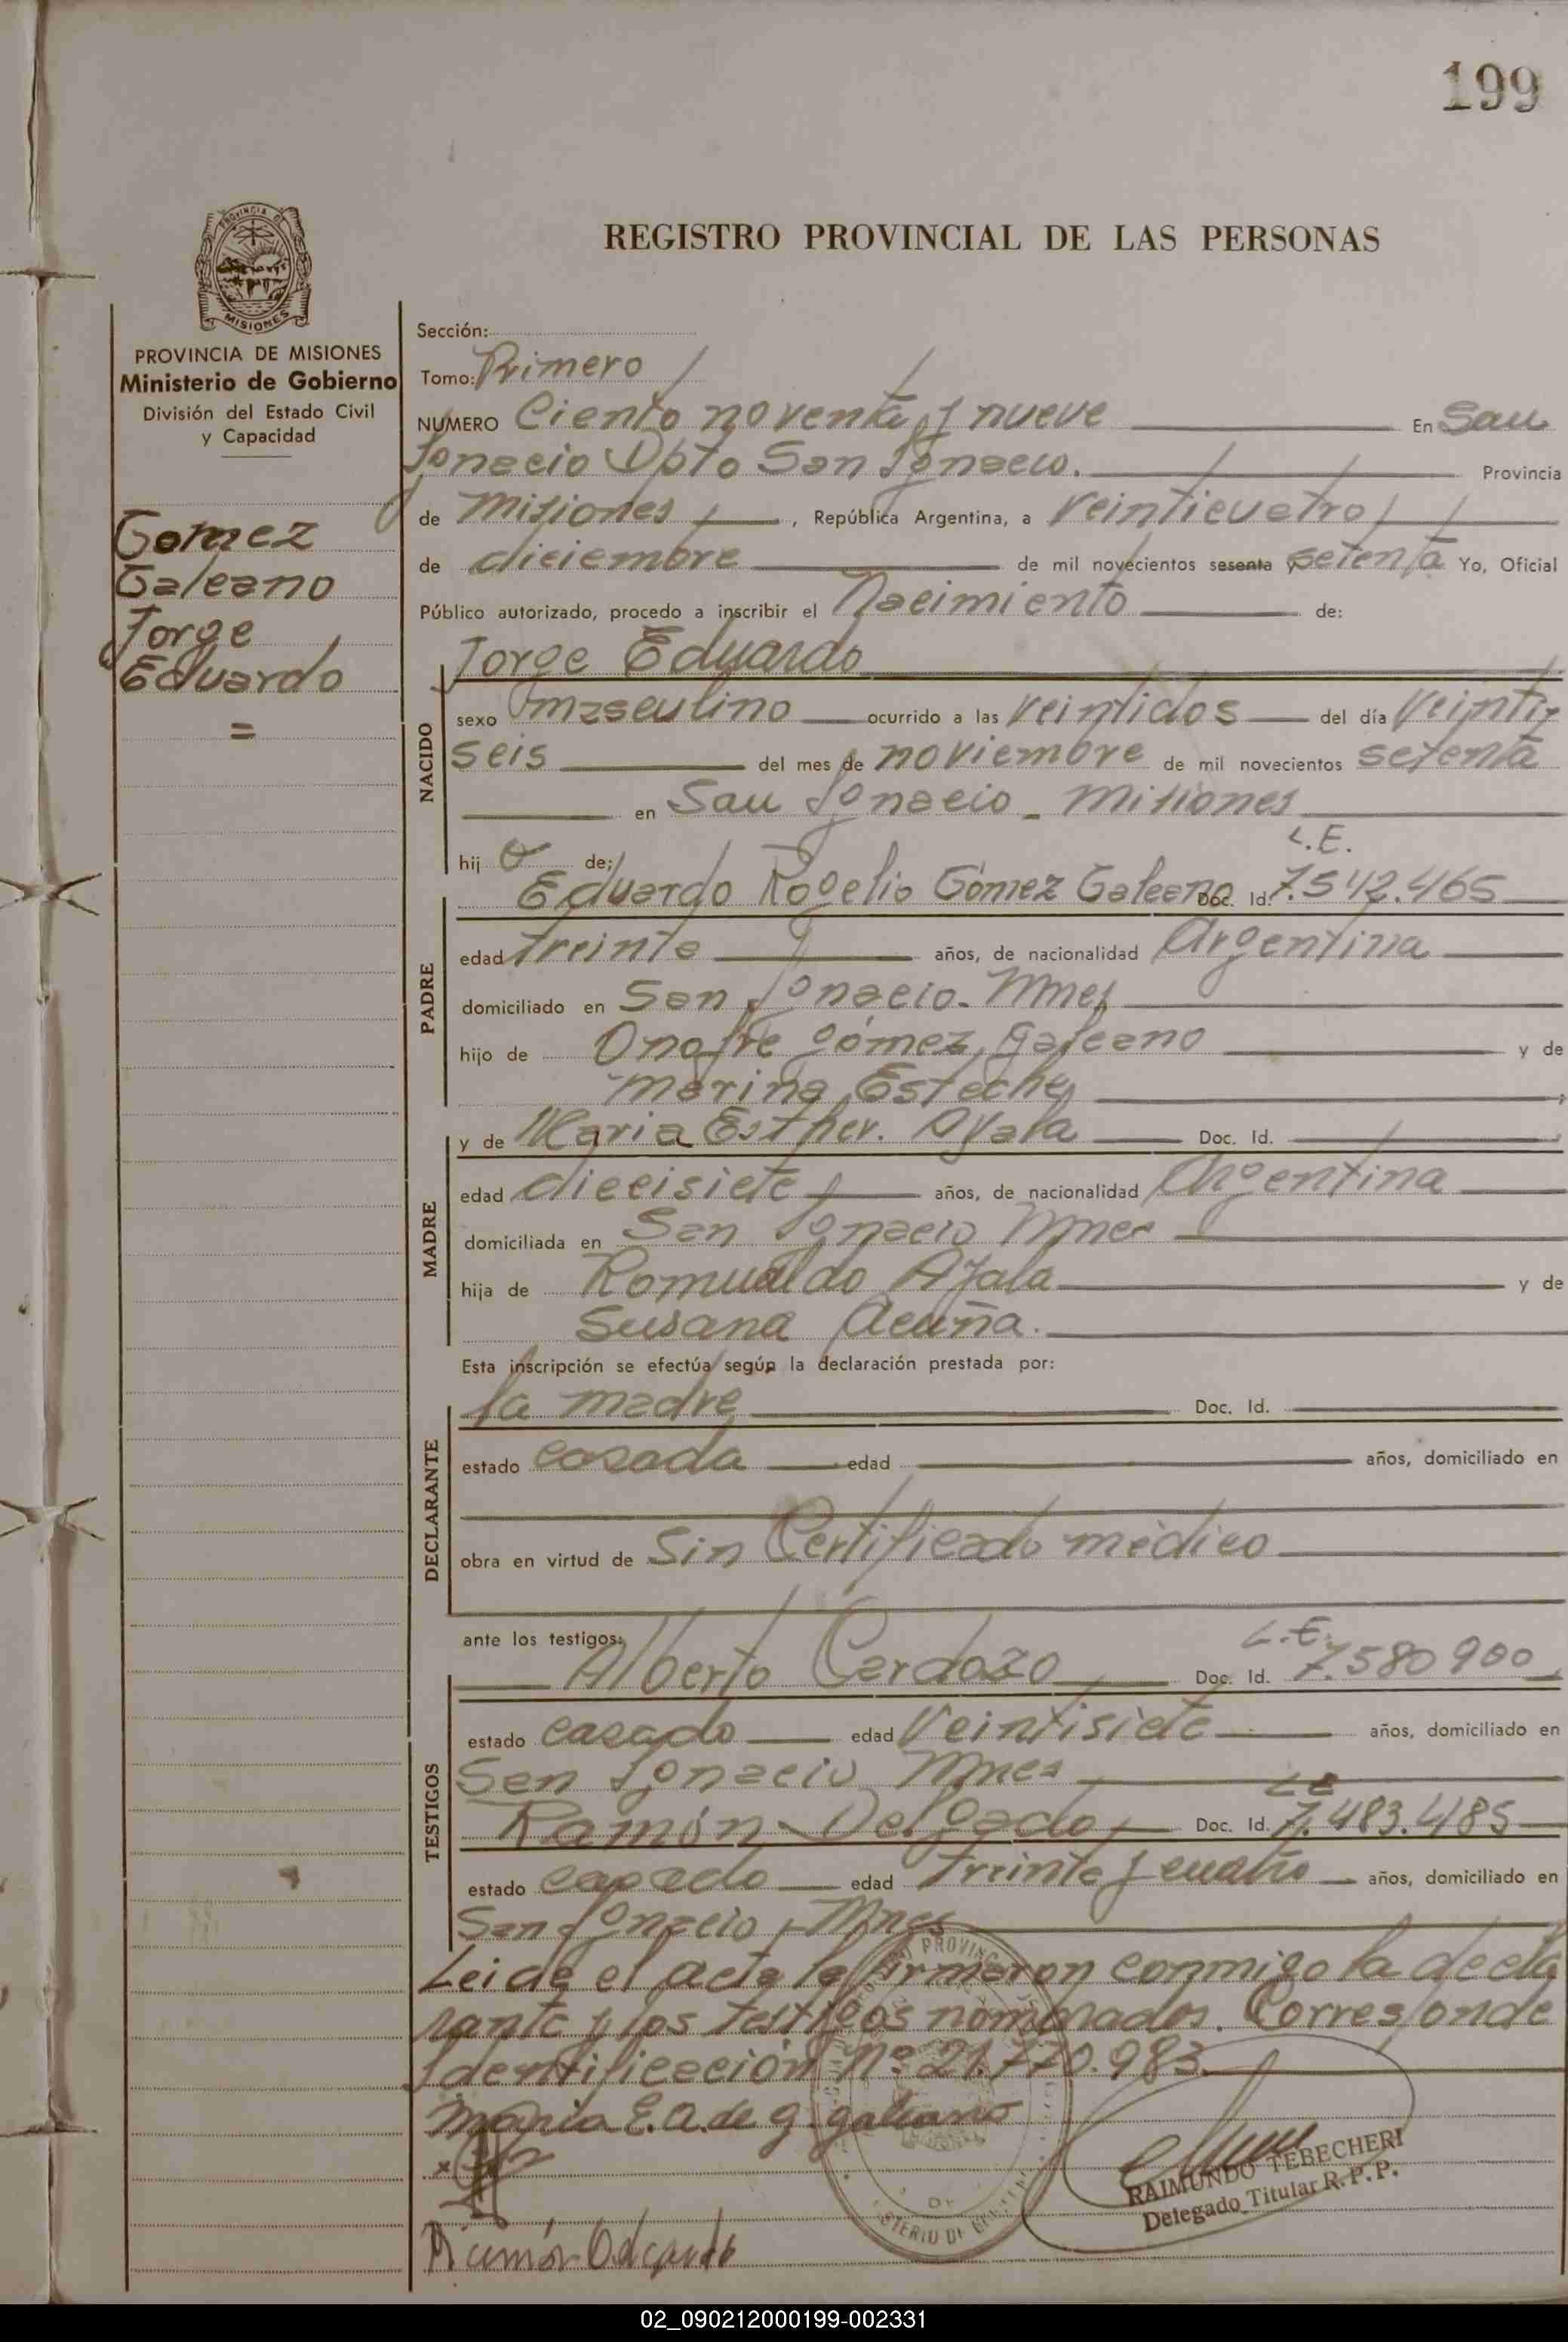 199
PROVINCIA DE
MISIONES
REGISTRO PROVINCIAL DE LAS PERSONAS
PROVINCIA DE MISIONES
Ministerio de Gobierno
División del Estado Civil
y Capacidad
Gomez
Galeano
Jorge
Eduardo
=
Sección:
Tomo: Primero
NUMERO Ciento noventa y nueve En San
Ignacio Dpto San Ignacio. Provincia
de Misiones, República Argentina, a veinticuatro
de diciembre de mil novecientos sesenta y setenta Yo, Oficial
Público autorizado, procedo a inscribir el Nacimiento de:
Jorge Eduardo
NACIDO
sexo masculino ocurrido a las veintidos del día veinti
seis del mes de noviembre de mil novecientos setenta
en San Ignacio - Misiones
hijo de:
L.E.
Eduardo Rogelio Gómez Galeano Doc. Id. 7.542.465
PADRE
edad treinta años, de nacionalidad Argentina
domiciliado en San Ignacio. Mnes
hijo de Onofre Gómez Galeano y de
Marina Esteche
MADRE
y de Maria Esther. Ayala Doc. Id.
edad diecisiete años, de nacionalidad Argentina
domiciliada en San Ignacio Mnes
hija de Romualdo Ayala y de
Susana Acuña.
Esta inscripción se efectúa según la declaración prestada por:
DECLARANTE
la madre Doc. Id.
estado casada edad años, domiciliado en
obra en virtud de Sin Certificado médico
ante los testigos:
L.E.
Alberto Cardozo Doc. Id. 7.580900
TESTIGOS
estado casado edad Veintisiete años, domiciliado en
San Ignacio Mnes
LE
Ramón Delgado Doc. Id. 7.483.485
estado casado edad Treinta y cuatro años, domiciliado en
San Ignacio, Mnes
Leida el acta la firmaron conmigo la decla
rante y los testigos nombrados. Corresponde
Identificación Nº 21.770.983.
Maria E. A. de G. galeano
RAIMUNDO TEBECHERI
Delegado Titular R. P. P.
Ramón Delgado
02_090212000199-002331